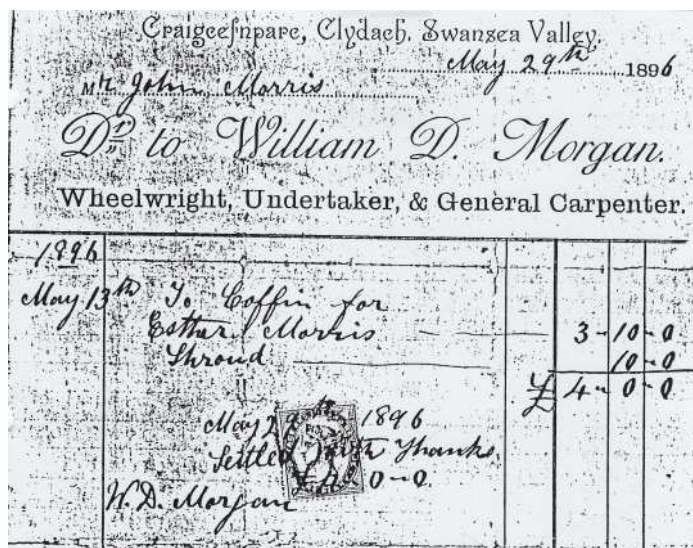 Craigcefnparc, Clydach, Swansea Valley,
May 29th 1896
Mr. John Morris
Dr. to William D. Morgan.
Wheelwright, Undertaker, & General Carpenter.
1896
May 13th To Coffin for
Esther Morris 3-10-0
Shroud 10-0
£ 4-0-0
May 29th 1896
Settled with Thanks
£4-0-0
W. D. Morgan